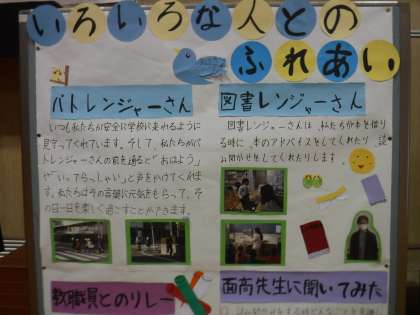 いろいろな人との
ふれあい
パトレンジャーさん
いつも私たちが安全に学校に来れるように
見守ってくれています。そして、私たちがパ
トレンジャーさんの前を通ると"おはよう"
や"いってらっしゃい"と声をかけてくれま
す。私たちはその言葉に元気をもらって、そ
の日一日を楽しく過ごすことができます。
図書レンジャーさん
図書レンジャーさんは、私たちが本を借り
る時に、本のアドバイスをしてくれたり、読
み聞かせをしてくれたりします
教職員とのリレー
面高先生に聞いてみた